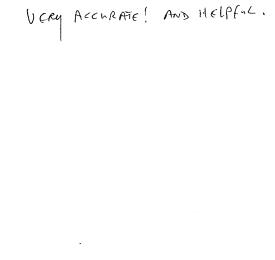 VERY ACCURATE! AND HELPFUL.